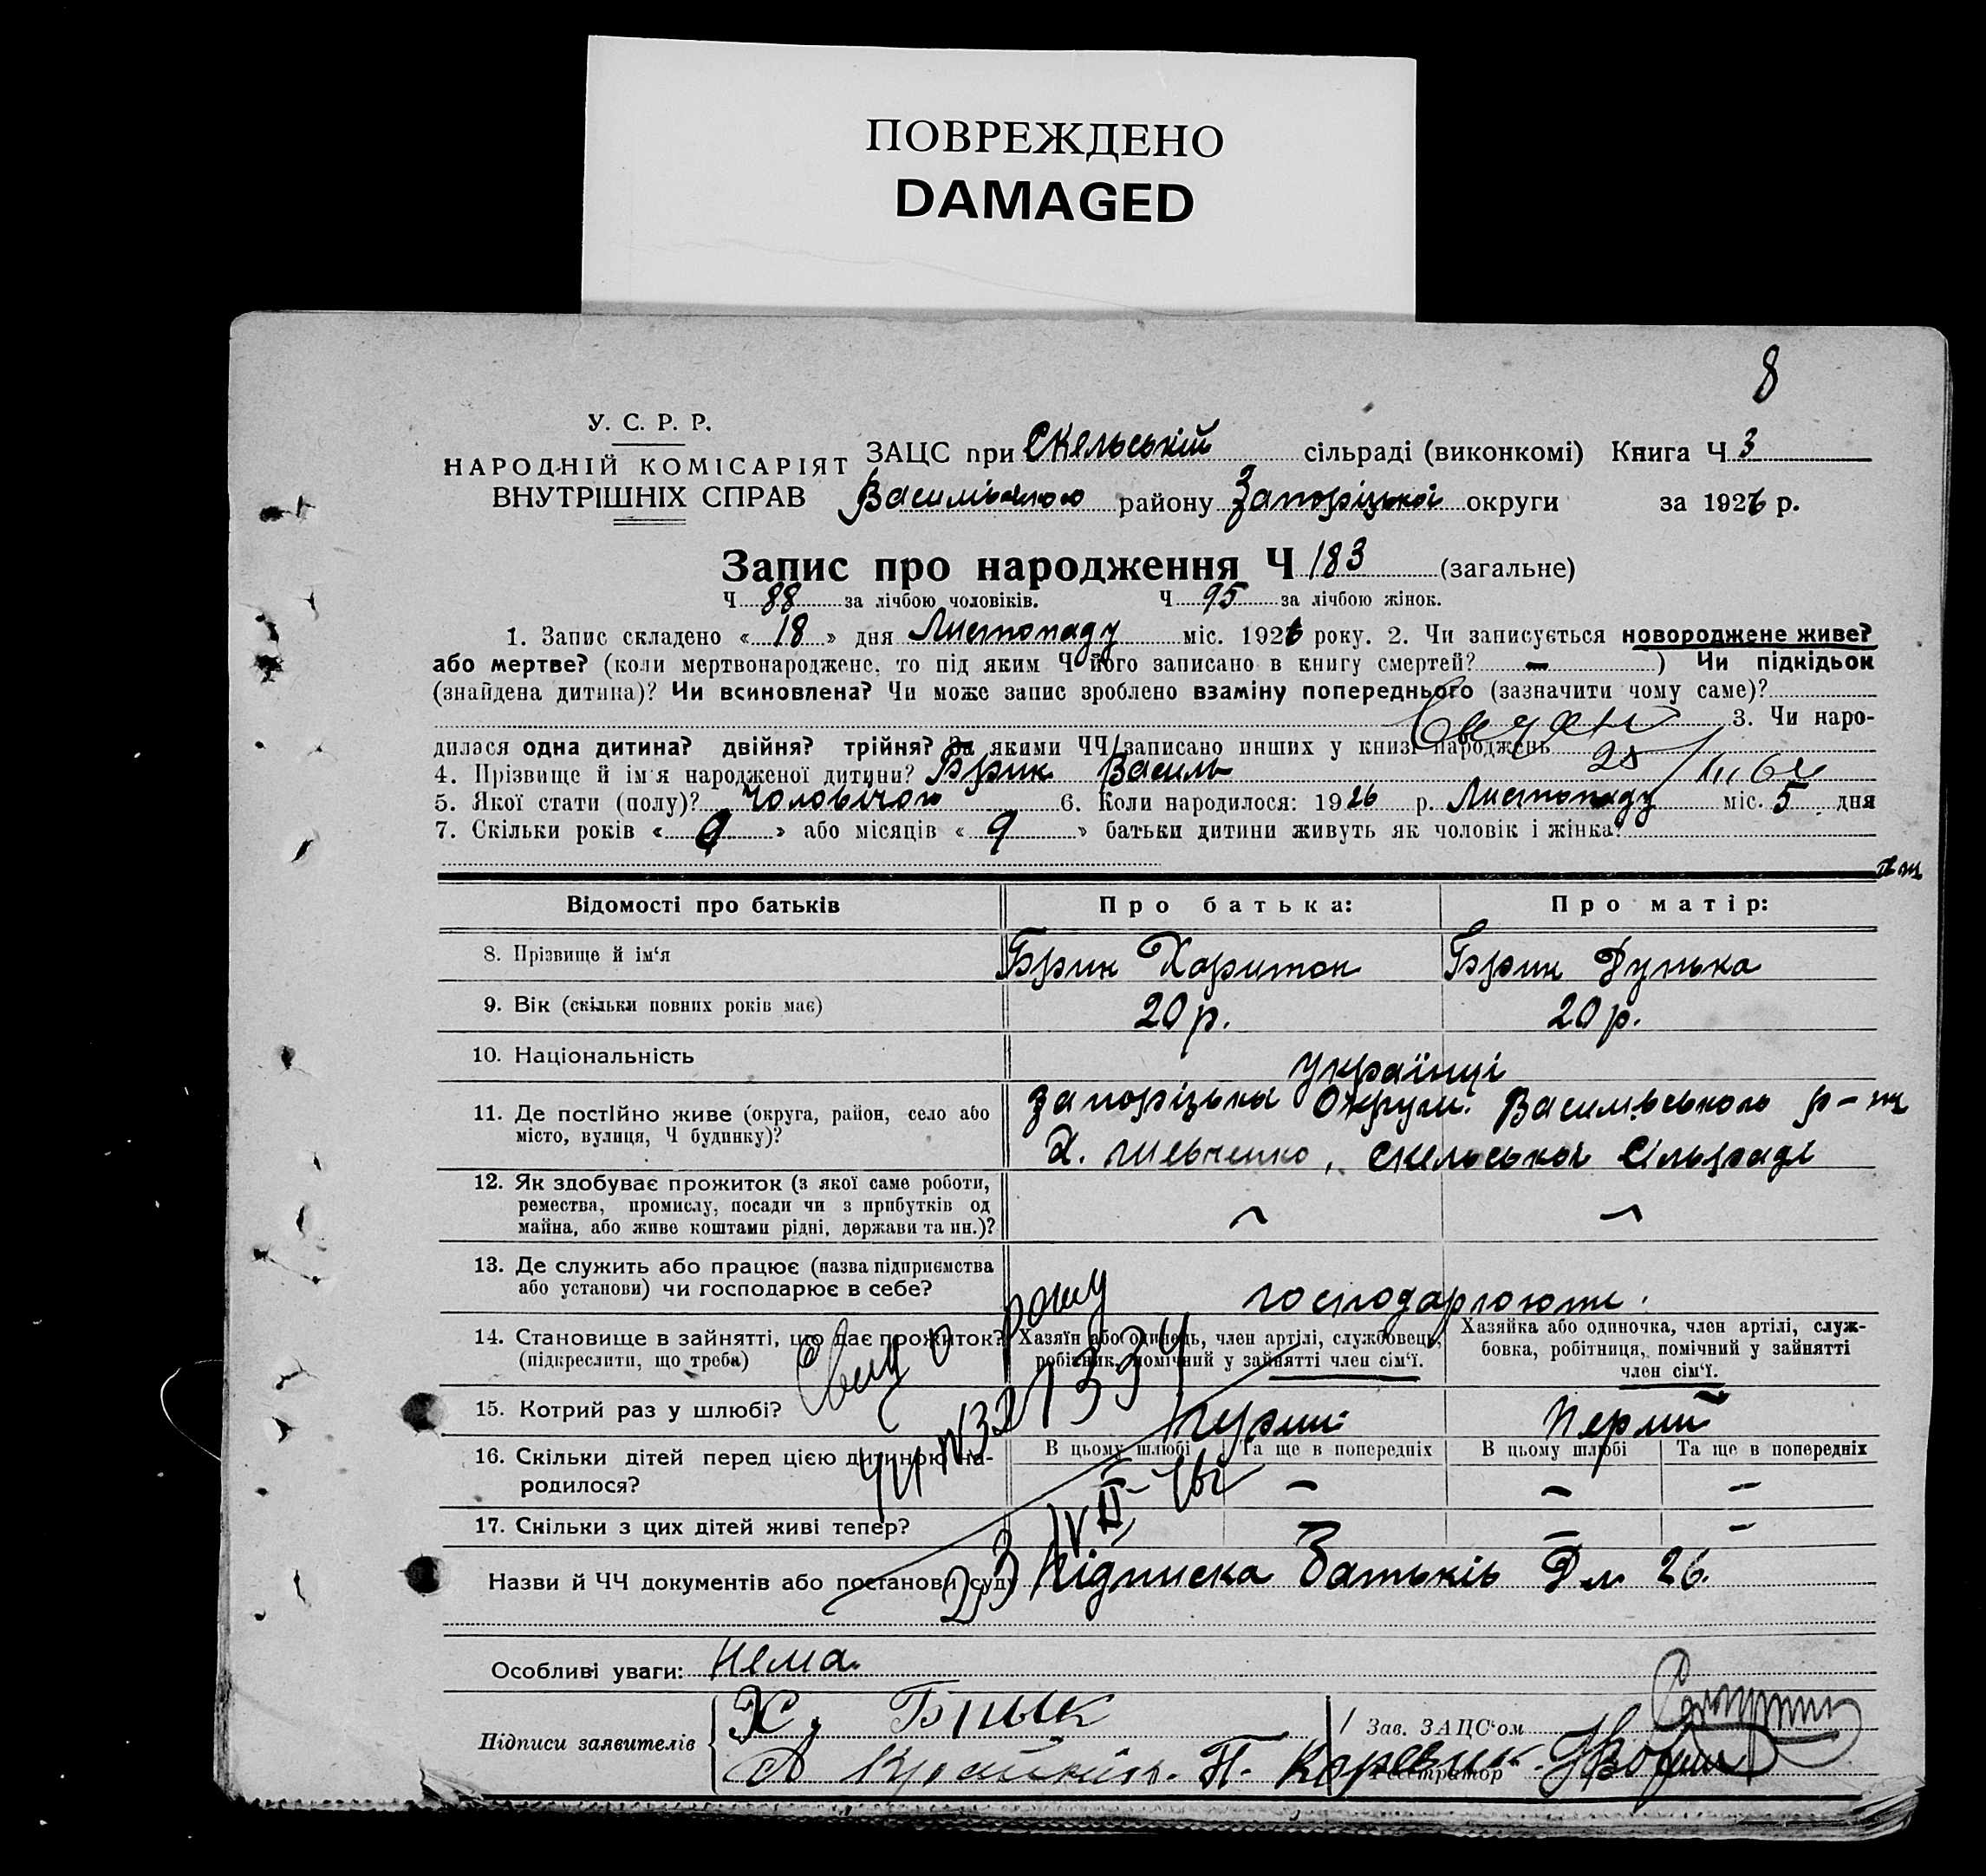 ПОВРЕЖДЕНО
DAMAGED
8
У. С. Р. Р.
НАРОДНІЙ КОМІСАРІЯТ
ВНУТРІШНІХ СПРАВ
ЗАЦС при Скельській сільраді (виконкомі) Книга Ч 3
району Запоріцької округи за 1926 р.
Запис про народження Ч 183 (загальне)
Ч 88 за лічбою чоловіків. Ч 95 за лічбою жінок.
1. Запис складено « 18 » дня Листопаду міс. 1926 року. 2. Чи записується новороджене живе?
або мертве? (коли мертвонароджене, то під яким Ч його записано в книгу смертей? — ) Чи підкідьок
(знайдена дитина)? Чи всиновлена? Чи може запис зроблено взаміну попереднього (зазначити чому саме)?
3. Чи наро-
дилася одна дитина? двійня? трійня? За якими ЧЧ записано инших у книзі народжень
4. Прізвище й ім'я народженої дитини? Брик Василь
5. Якої стати (полу)? Чоловічого 6. Коли народилося: 1926 р. Листопаду міс. 5 дня
7. Скільки років « » або місяців « 9 » батьки дитини живуть як чоловік і жінка?
Відомості про батьків Про батька: Про матір:
8. Прізвище й ім'я Брик Харитон Брик Дунька
9. Вік (скільки повних років має) 20 р. 20 р.
10. Національність Українці
11. Де постійно живе (округа, район, село або Запоріцька Округи. Василівського р-ну
місто, вулиця, Ч будинку)? Х. Шевченко, Скельської Сільради
12. Як здобуває прожиток (з якої саме роботи,
ремества, промислу, посади чи з прибутків од
майна, або живе коштами рідні, держави та ин.)?
13. Де служить або працює (назва підприємства
або установи) чи господарює в себе? господарюють.
14. Становище в зайнятті, що дає прожиток?
(підкреслити, що треба)
Хазяїн або одинець, член артілі, службовець,
робітник, помічний у зайнятті член сім'ї.
Хазяйка або одиночка, член артілі, служ-
бовка, робітниця, помічний у зайнятті
член сім'ї.
15. Котрий раз у шлюбі? перший Перший
16. Скільки дітей перед цією дитиною на-
родилося?
В цьому шлюбі Та ще в попередніх В цьому шлюбі Та ще в попередніх
— — —
17. Скільки з цих дітей живі тепер?
Назви й ЧЧ документів або постанови суду Підписка Батьків Дм 26.
Особливі уваги: Нема.
Підписи заявителів Х. Брык
Зав. ЗАЦС'ом
Реєстратор